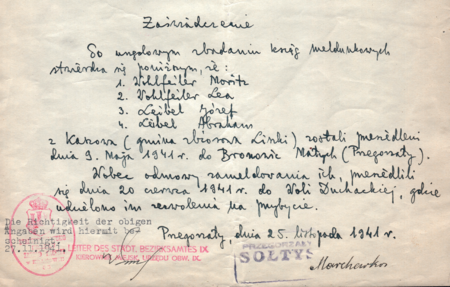 Zaświadczenie
Po urzędowym zbadaniu ksiąg meldunkowych
stwierdza się poniższym, że:
1. Wohlfeiler Moritz
2. Wohlfeiler Lea
3. Leibel Józef
4. Leibel Abraham
z Kaszowa (gmina zbiorow. Liszki) zostali przesiedleni
dnia 9. Maja 1941 r. do Bronowic Małych (Przegorzały).
Wobec odmowy zameldowania ich, przesiedlili
się dnia 20 czerwca 1941 r. do Woli Duchackiej, gdzie
udzielono im zezwolenia na przybycie.
Przegorzały, dnia 25. listopada 1941 r.
Die Richtigkeit der obigen
Angaben wird hiermit be-
scheinigt.
27.11.1941.
LEITER DES STÄDT. BEZIRKSAMTES IX
KIEROWNIK MIEJSK. URZĘDU OBW. IX.
PRZEGORZAŁY
SOŁTYS